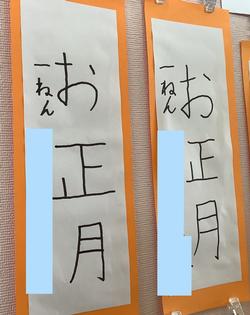 お正月
一ねん
お正月
一ねん